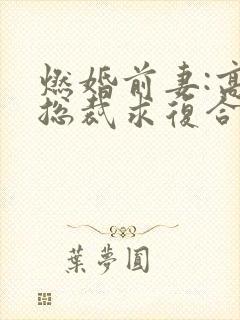 燃婚前妻:高
总裁求復合
葉夢圓